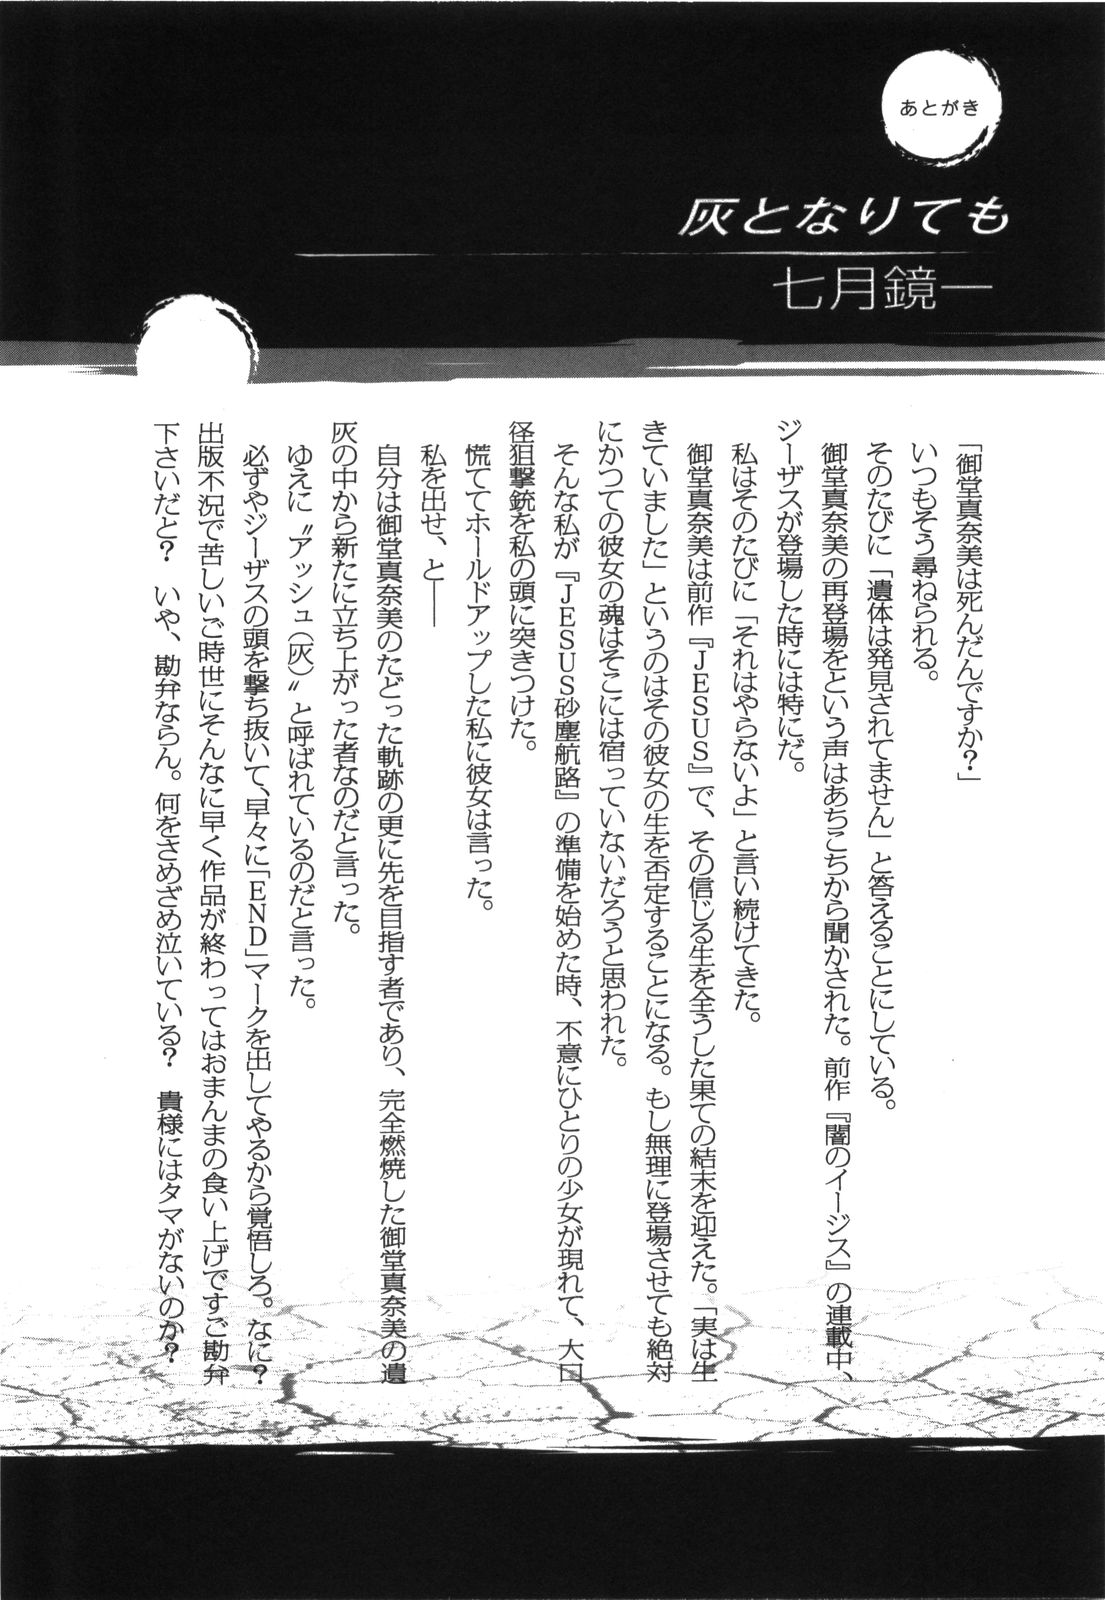 あとがき
灰となりても
七月鏡一
「御堂真奈美は死んだんですか？」
いつもそう尋ねられる。
そのたびに「遺体は発見されてません」と答えることにしている。
御堂真奈美の再登場をという声はあちこちから聞かされた。前作『闇のイージス』の連載中、
ジーザスが登場した時には特にだ。
私はそのたびに「それはやらないよ」と言い続けてきた。
御堂真奈美は前作『ＪＥＳＵＳ』で、その信じる生を全うした果ての結末を迎えた。「実は生
きていました」というのはその彼女の生を否定することになる。もし無理に登場させても絶対
にかつての彼女の魂はそこには宿っていないだろうと思われた。
そんな私が『ＪＥＳＵＳ砂塵航路』の準備を始めた時、不意にひとりの少女が現れて、大口
径狙撃銃を私の頭に突きつけた。
慌ててホールドアップした私に彼女は言った。
私を出せ、と――
自分は御堂真奈美のたどった軌跡の更に先を目指す者であり、完全燃焼した御堂真奈美の遺
灰の中から新たに立ち上がった者なのだと言った。
ゆえに〝アッシュ（灰）〟と呼ばれているのだと言った。
必ずやジーザスの頭を撃ち抜いて、早々に「ＥＮＤ」マークを出してやるから覚悟しろ。なに？
出版不況で苦しいご時世にそんなに早く作品が終わってはおまんまの食い上げですご勘弁
下さいだと？　いや、勘弁ならん。何をさめざめ泣いている？　貴様にはタマがないのか？